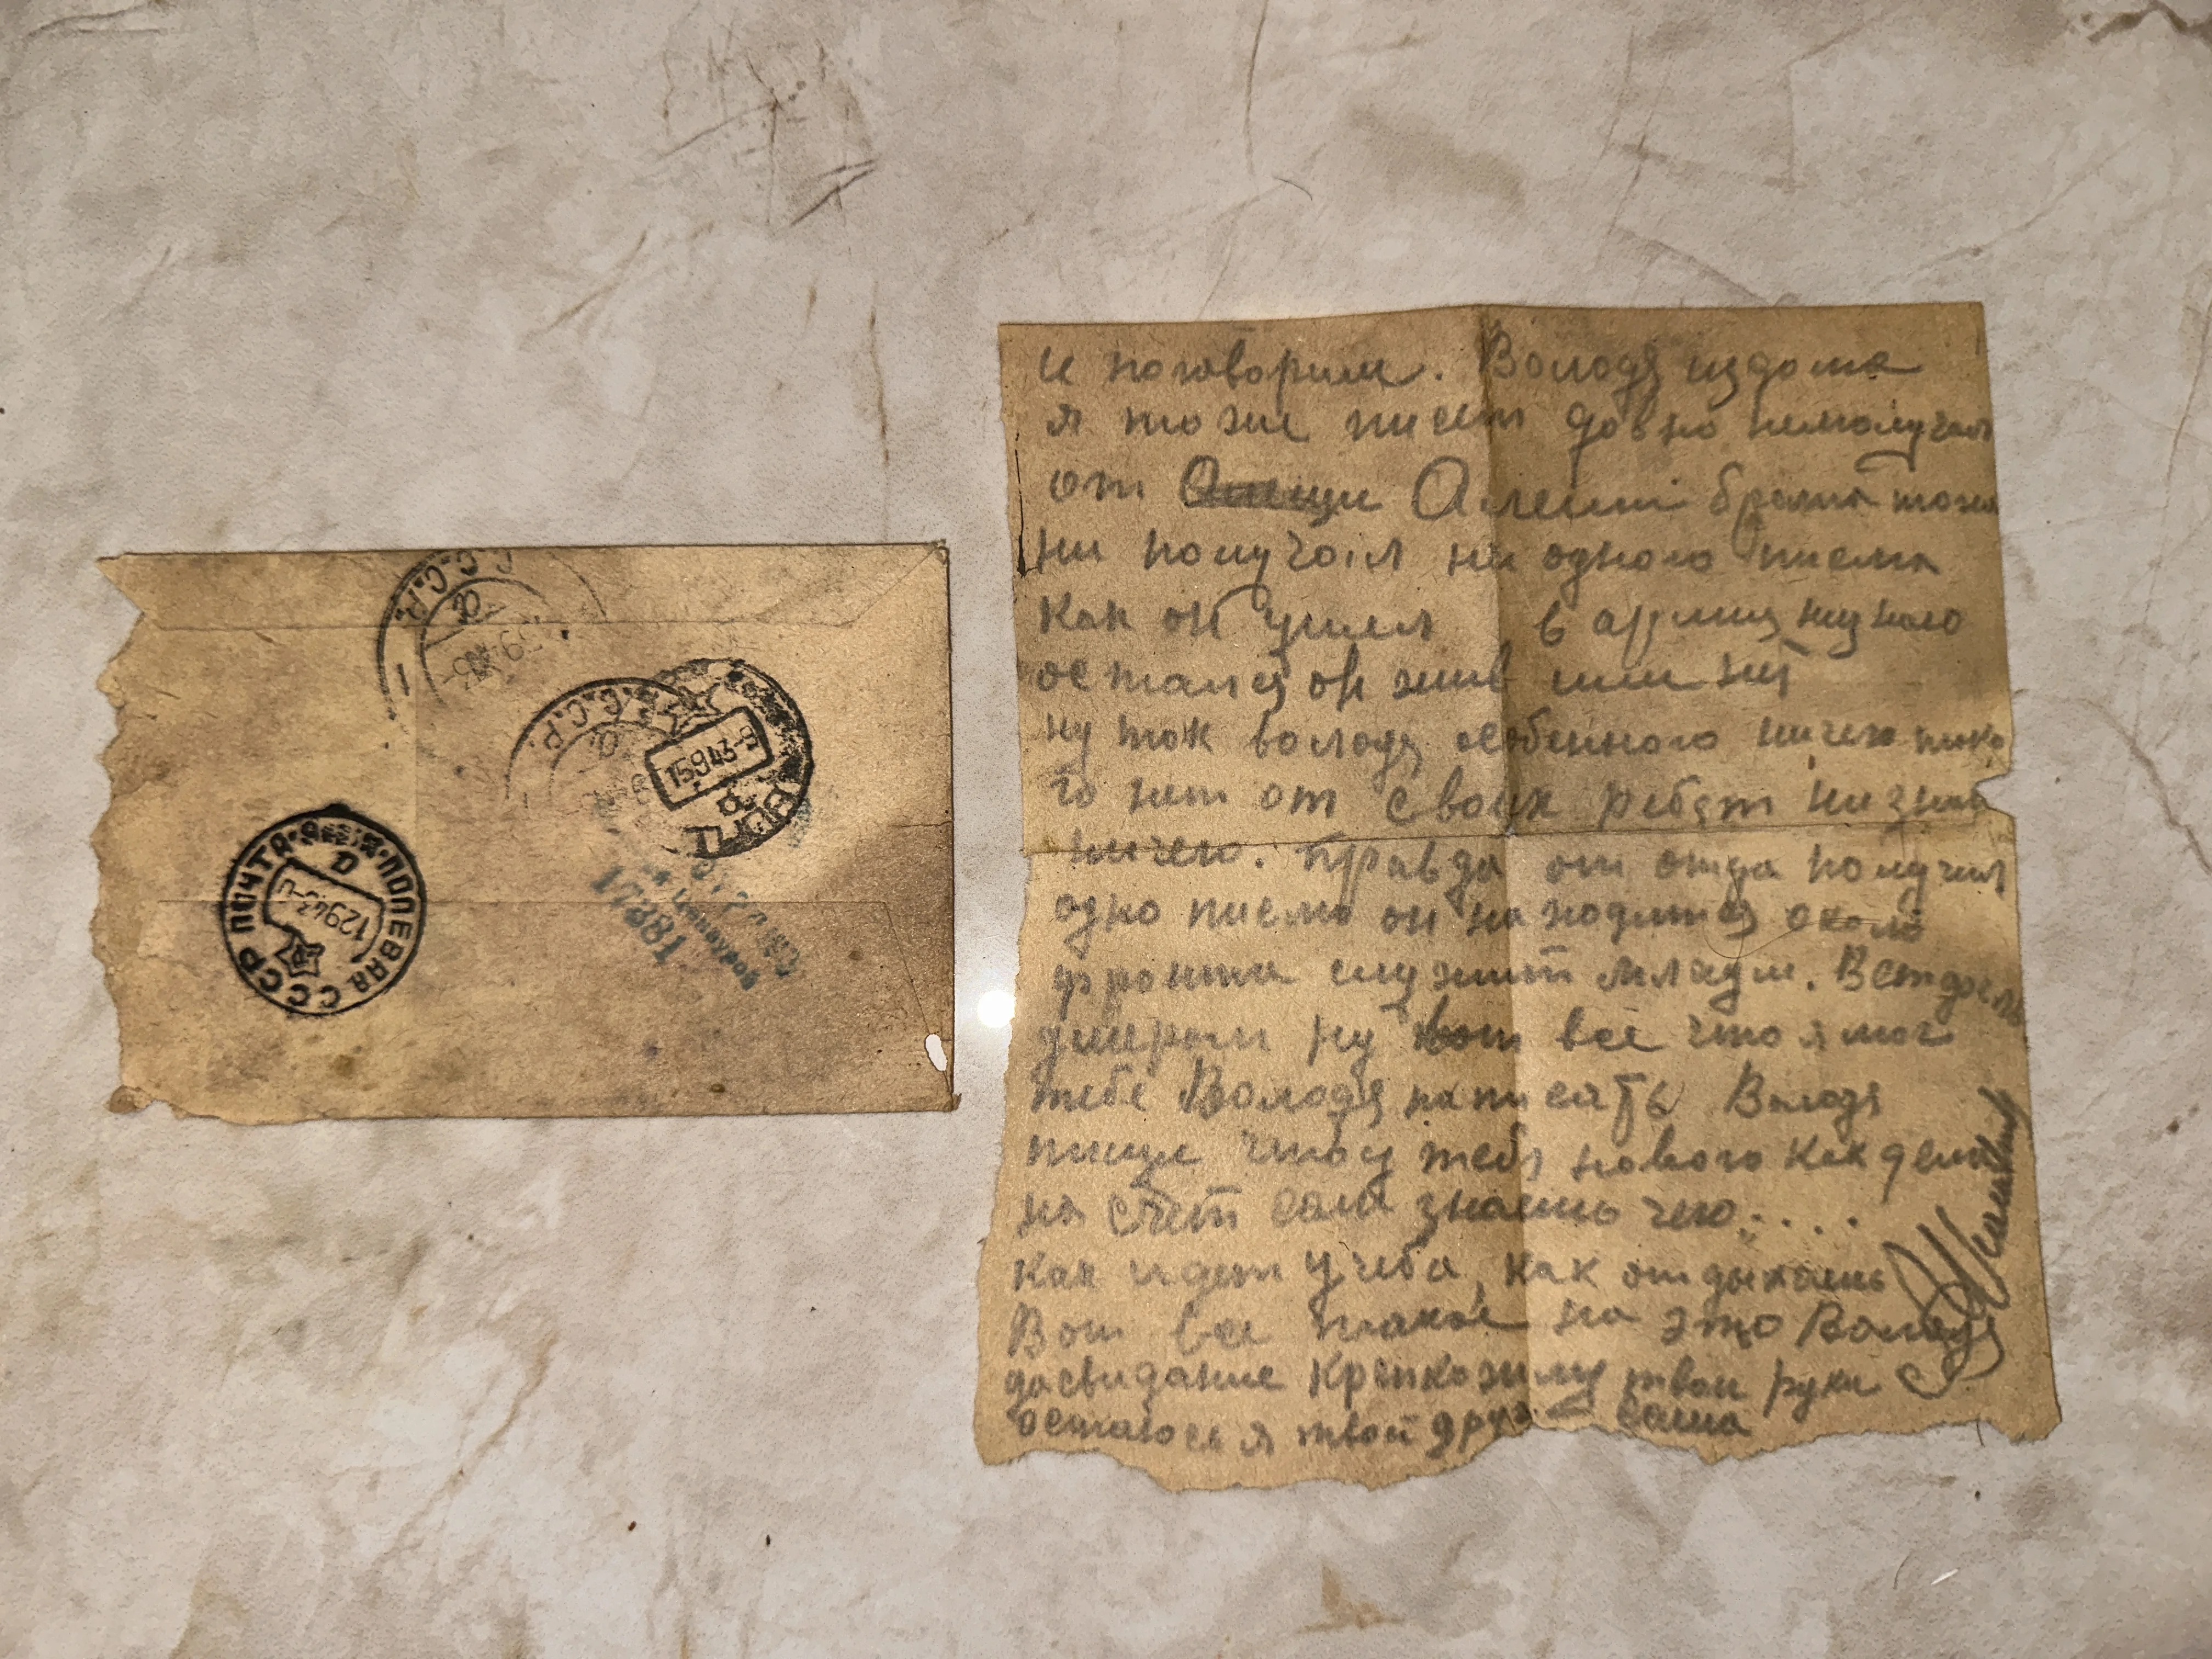 С.С.С.Р.
С.С.С.Р.
15943-9
ПОЛЕВАЯ ПОЧТА СССР
12943
Военной
18871
и поговорим. Володя издома
я тоже писем довно неполучал
от Алеши брата тоже
ни получал ни одного писма
как он ушел в армию низнаю
остался он жив или нет
ну так володя особенного ничего тако
го нет от своих ребят низнаю
ничего. Правда от отца получил
одно писмо он находится около
фронта служит
умером ну вот всё что я мог
тебе Володя написать Володя
пиши что у тебя нового как дела
на счёт сам знаешь чего....
как идет учеба, как отдыхаешь
Вот все пакое на это Володя
досвидание крепко жму твои руки
остаюсь я твой друг Саша